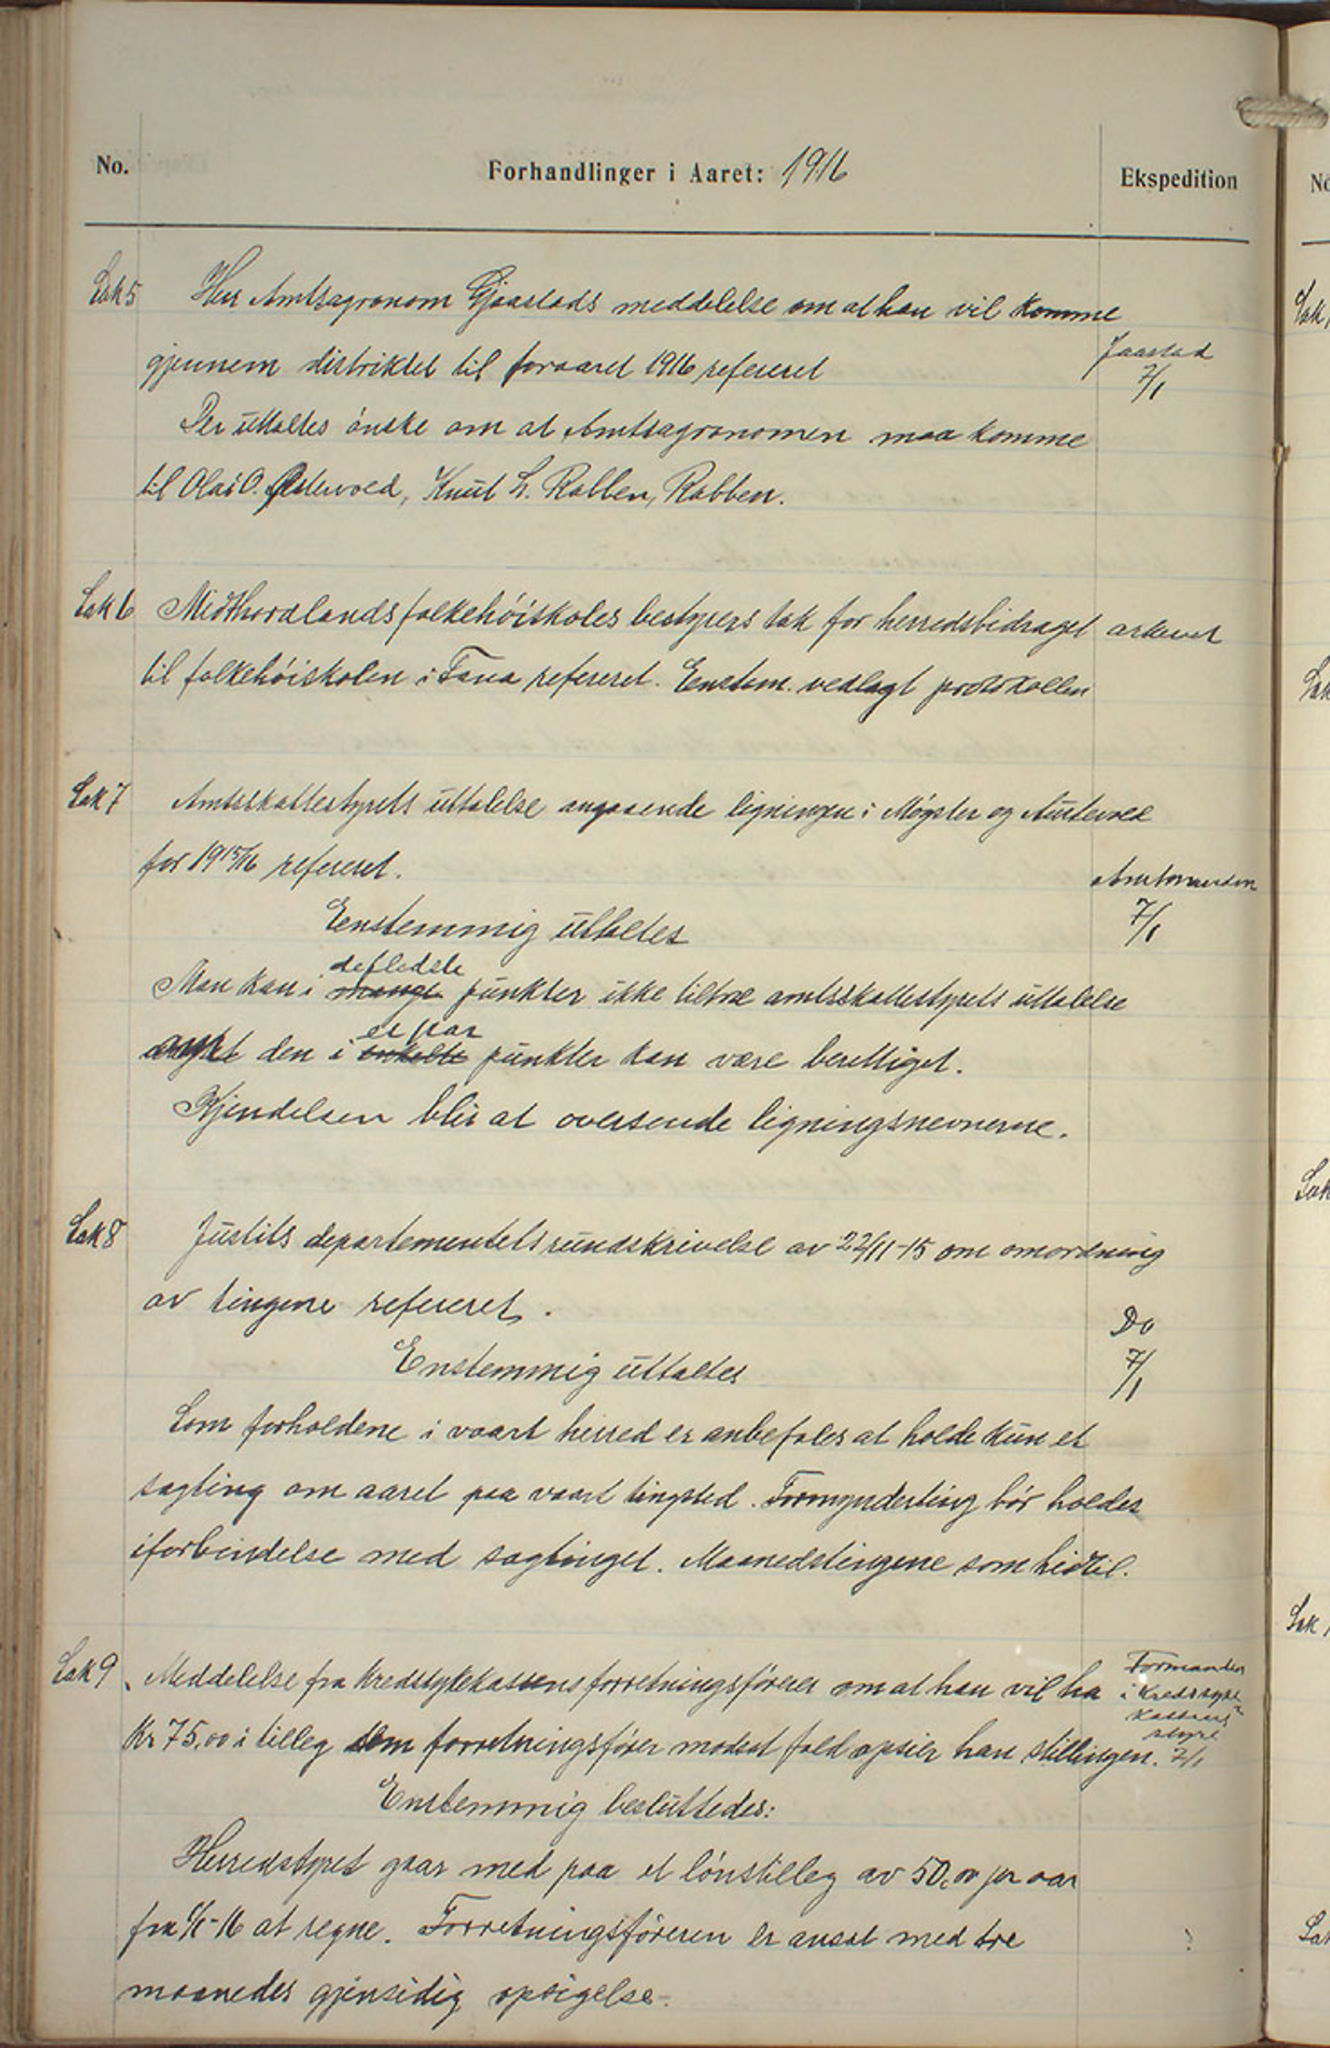 No. Forhandlinger i Aaret: 1916 Ekspedition
Sak 5 Herr Amtsagronom Gjaastads meddelelse om at han vil komme
gjennem distriktet til foraaret 1916 refereret
Jaastad
7/1
Der uttaltes ønske om at Amtsagronomen maa komme
til Olai O. Østervold, Knut L. Rabben, Rabben.
Sak 6 Midthordlands folkehöiskoles bestyrers tak for herredsbidraget arkivet
til folkehöiskolen i Fana refereret. Enstem. vedlagt protokollen
Sak 7 Amtsskattestyrets uttalelse angaaende ligningen i Møgster og Austevold
for 1915/16 refereret.
Amtmanden
7/1
Enstemmig uttaltes
defledste
Man kan i mange punkter ikke tiltræ amtsskattestyrets uttalelse
et par
den i enkelte punkter kan være berettiget.
Kjendelsen blir at oversende ligningsnevnerne.
Sak 8 Justits departementets rundskrivelse av 22/11-15 om omordning
av tingene refereret.
Do
7/1
Enstemmig uttaltes
Som forholdene i vaart herred er anbefales at holde kun et
sagting om aaret paa vaart tingsted. Formynderting bör holdes
iforbindelse med sagtinget. Maanedstingene som hidtil.
Sak 9 Meddelelse fra Kredssykekassens forretningsförer om at han vil ha
Kr 75,00 i tilleg som forretningsförer modsat fald opsier han stillingen.
Formanden
i Kredssyke
kassens
styre
7/1
Enstemmig besluttedes:
Herredstyret gaar med paa et lönstilleg av 50,00 pr aar
fra 1/1-16 at regne. Forretningsföreren er ansat med tre
maanedes gjensidig opsigelse.
No
Sak
Sak
Sak
Sak
Sak